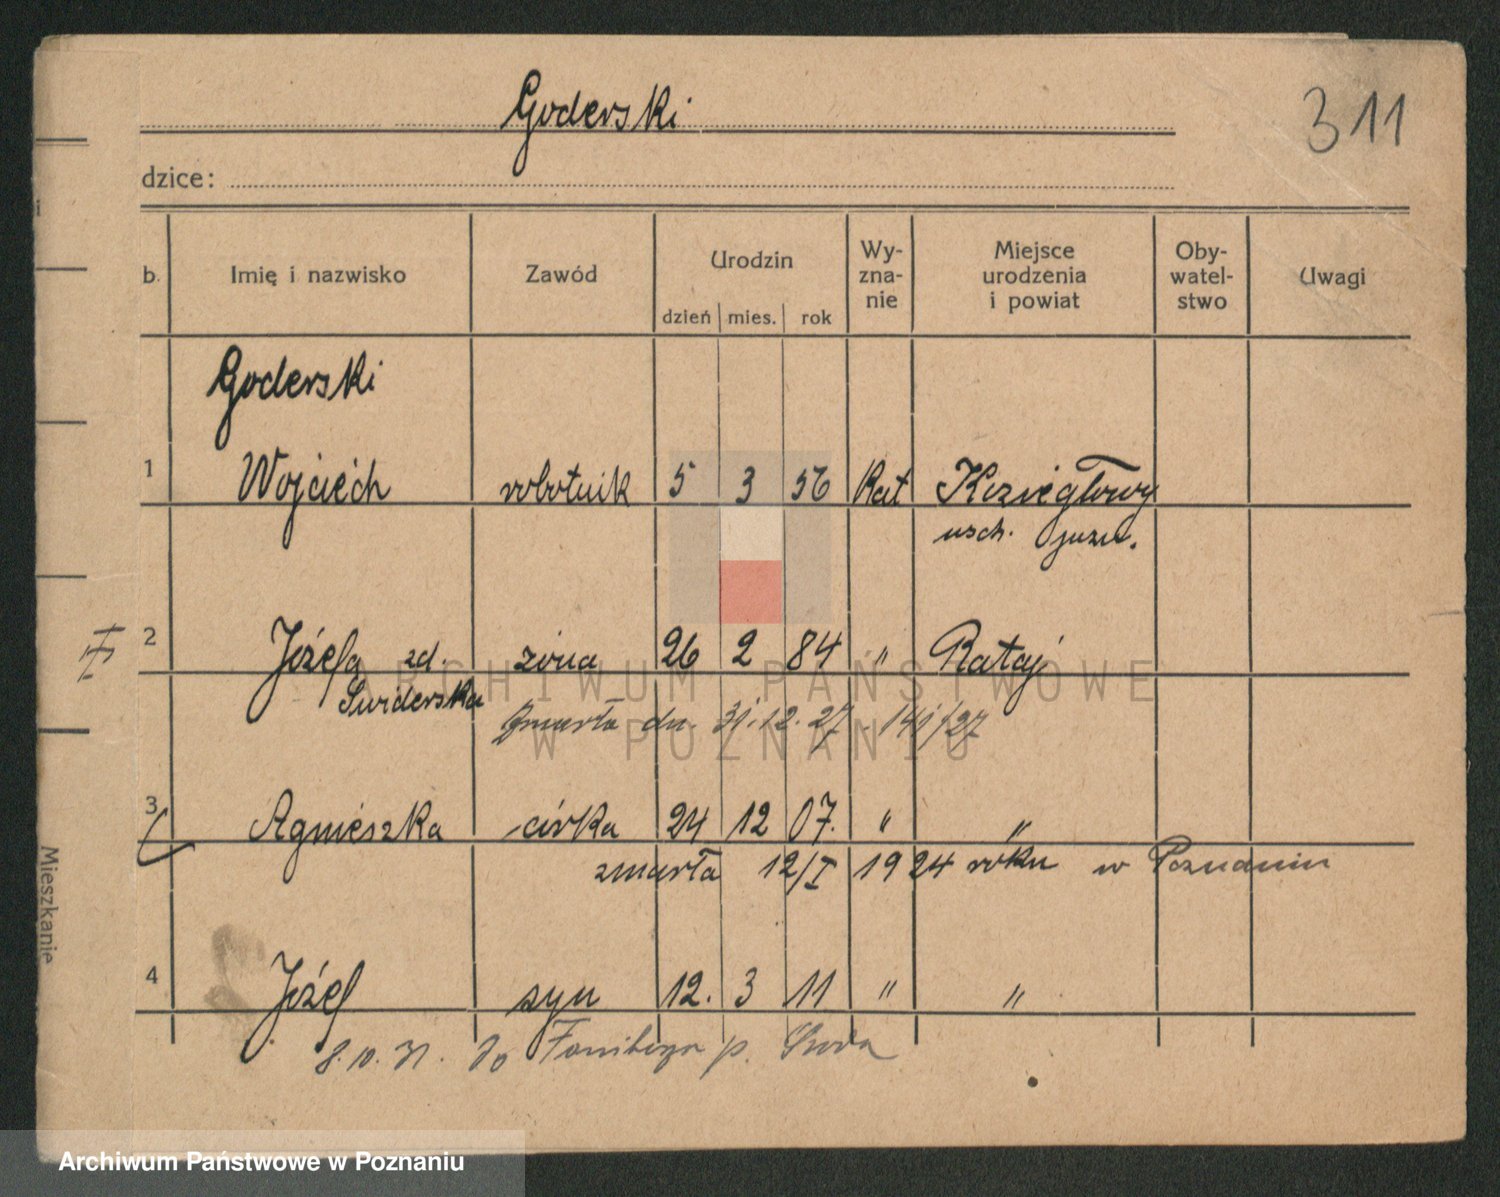 Goderski
311
dzice:
b. Imię i nazwisko Zawód Urodzin dzień mies. rok Wy-zna-nie Miejsce urodzenia i powiat Oby-watel-stwo Uwagi
Goderski
1 Wojciech robotnik 5 3 56 Kat Koziegłowy
wsch. pozn.
2 Józefa zd. żona 26 2 84 " Rataj
Swiderska
Zmarła dn. 31.12.27 141/27
3 Agnieszka córka 24 12 07. " "
zmarła 12/I 1924 roku w Poznaniu
4 Józef syn 12. 3 11 " "
8.10.31. do p. Środa
Mieszkanie
ARCHIWUM PAŃSTWOWE
W POZNANIU
Archiwum Państwowe w Poznaniu